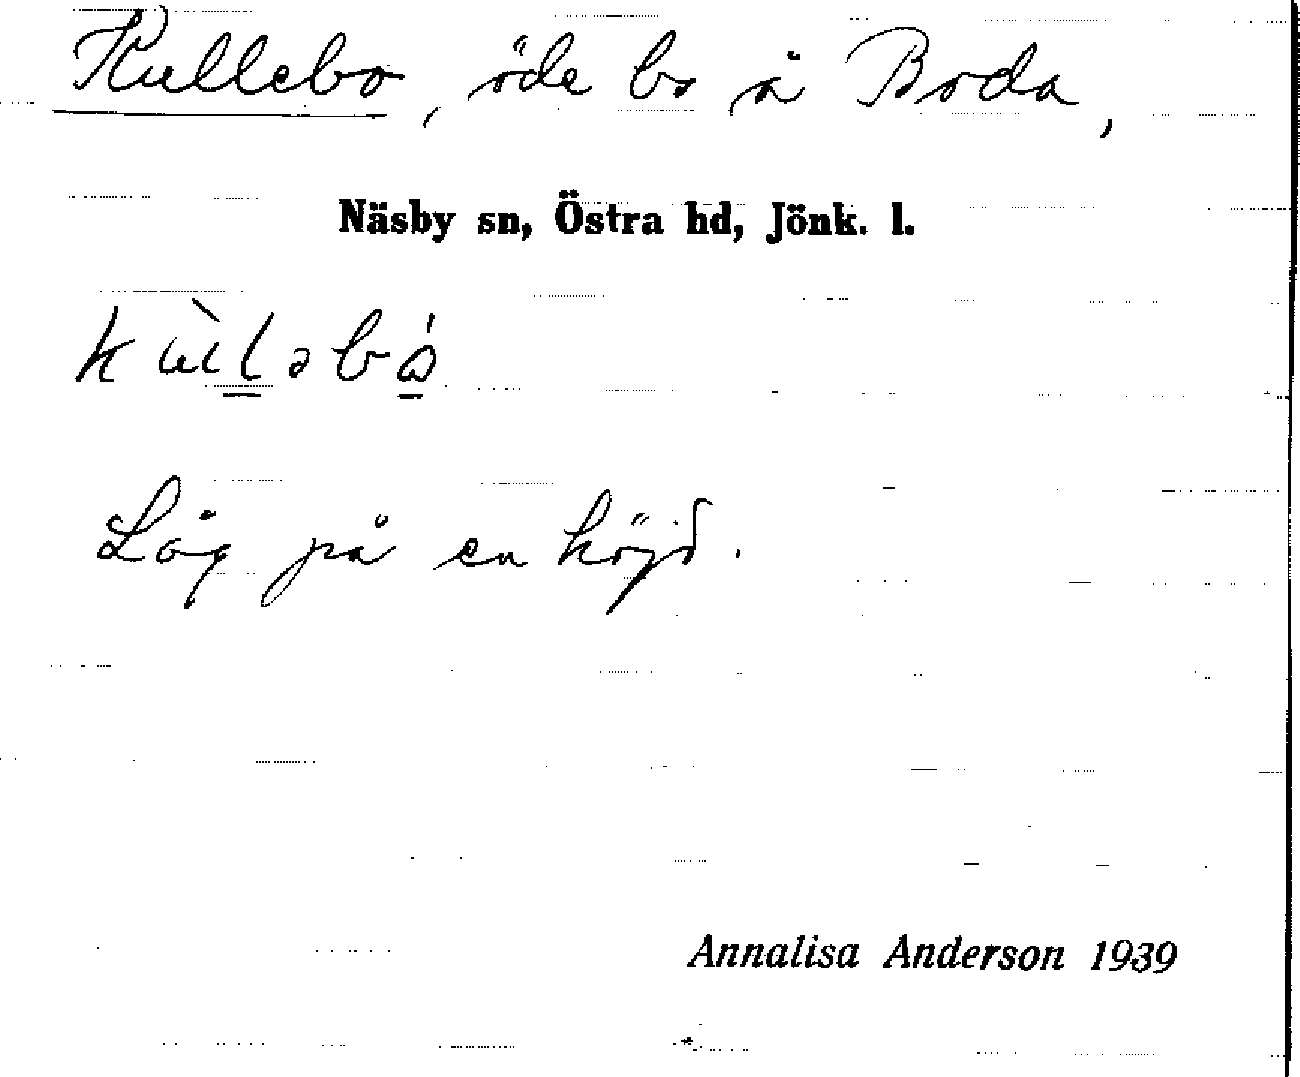 Kullebo, öde bs å Boda,
Näsby sn, Östra hd, Jönk. l.
kùl̲ləbó̲
Låg på en höjd.
Annalisa Anderson 1939